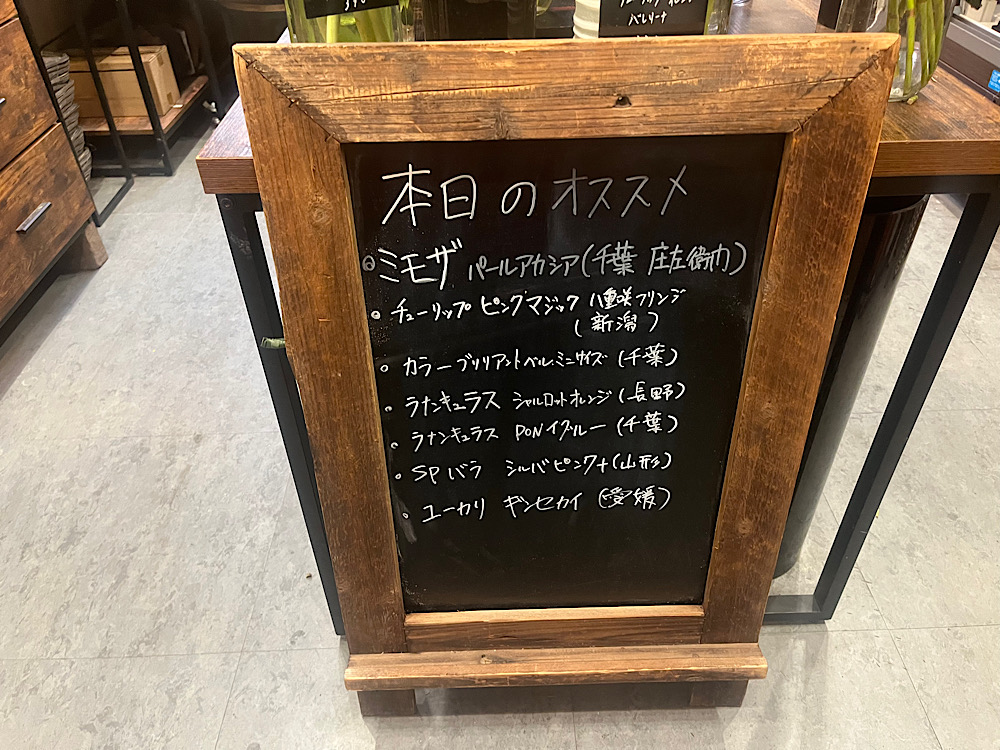 バレリーナ
本日のオススメ
ミモザ パールアカシア(千葉 庄左衛門)
チューリップ ピンクマジック 八重咲フリンジ
(新潟)
カラー ブリリアントベル ミニサイズ (千葉)
ラナンキュラス シャルロットオレンジ (長野)
ラナンキュラス PONイグルー (千葉)
SPバラ シルバピンク+ (山形)
ユーカリ ギンセカイ (愛媛)